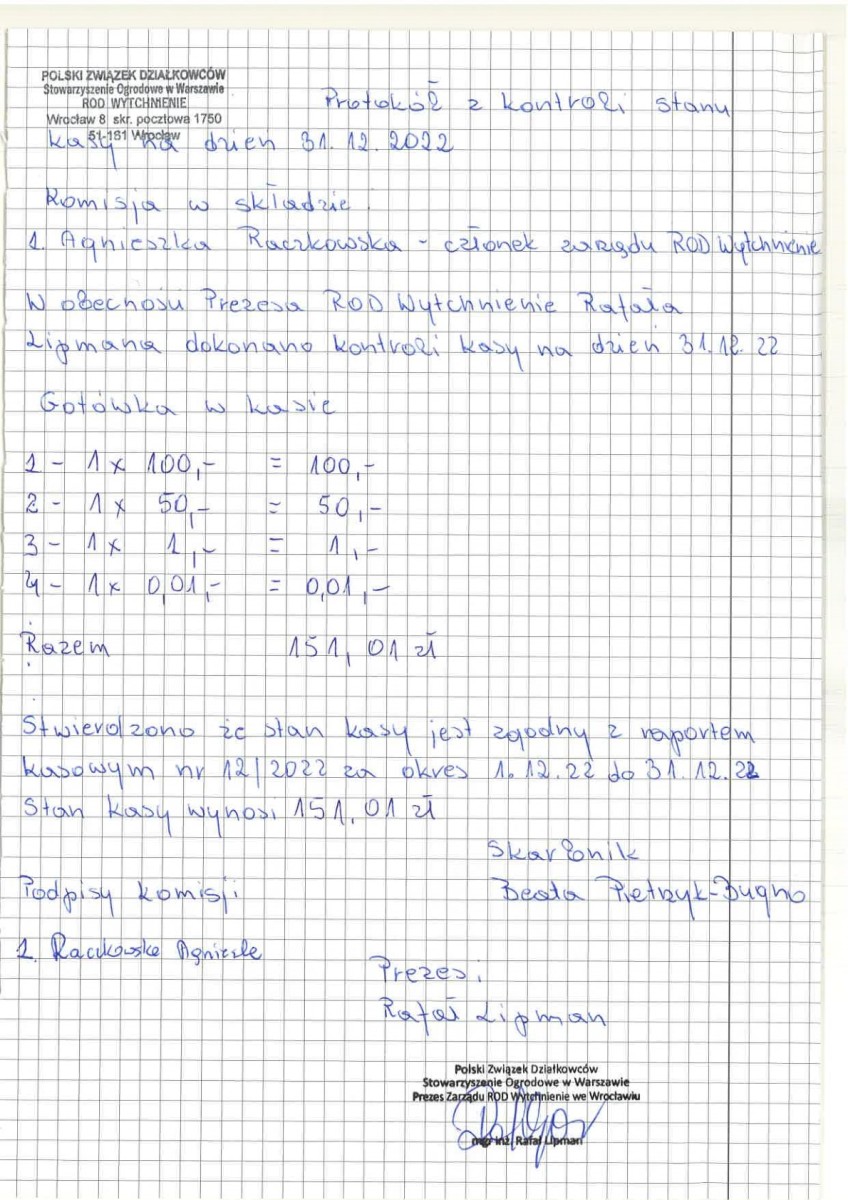 POLSKI ZWIĄZEK DZIAŁKOWCÓW
Stowarzyszenie Ogrodowe w Warszawie
ROD WYTCHNIENIE
Wrocław 8 skr. pocztowa 1750
51-181 Wrocław
Protokół z kontroli stanu
kasy na dzień 31.12.2022
Komisja w składzie:
1. Agnieszka Raczkowska - członek zarządu ROD Wytchnienie
W obecności Prezesa ROD Wytchnienie Rafała
Lipmana dokonano kontroli kasy na dzień 31.12.22
Gotówka w kasie
1 - 1 x 100,- = 100,-
2 - 1 x 50,- = 50,-
3 - 1 x 1,- = 1,-
4 - 1 x 0,01,- = 0,01,-
Razem 151,01 zł
Stwierdzono że stan kasy jest zgodny z raportem
kasowym nr 12/2022 za okres 1.12.22 do 31.12.22
Stan kasy wynosi 151,01 zł
Skarbnik
Podpisy komisji Beata Pietrzyk-Bugno
1. Raczkowska Agnieszka
Prezes:
Rafał Lipman
Polski Związek Działkowców
Stowarzyszenie Ogrodowe w Warszawie
Prezes Zarządu ROD Wytchnienie we Wrocławiu
mgr inż. Rafał Lipman